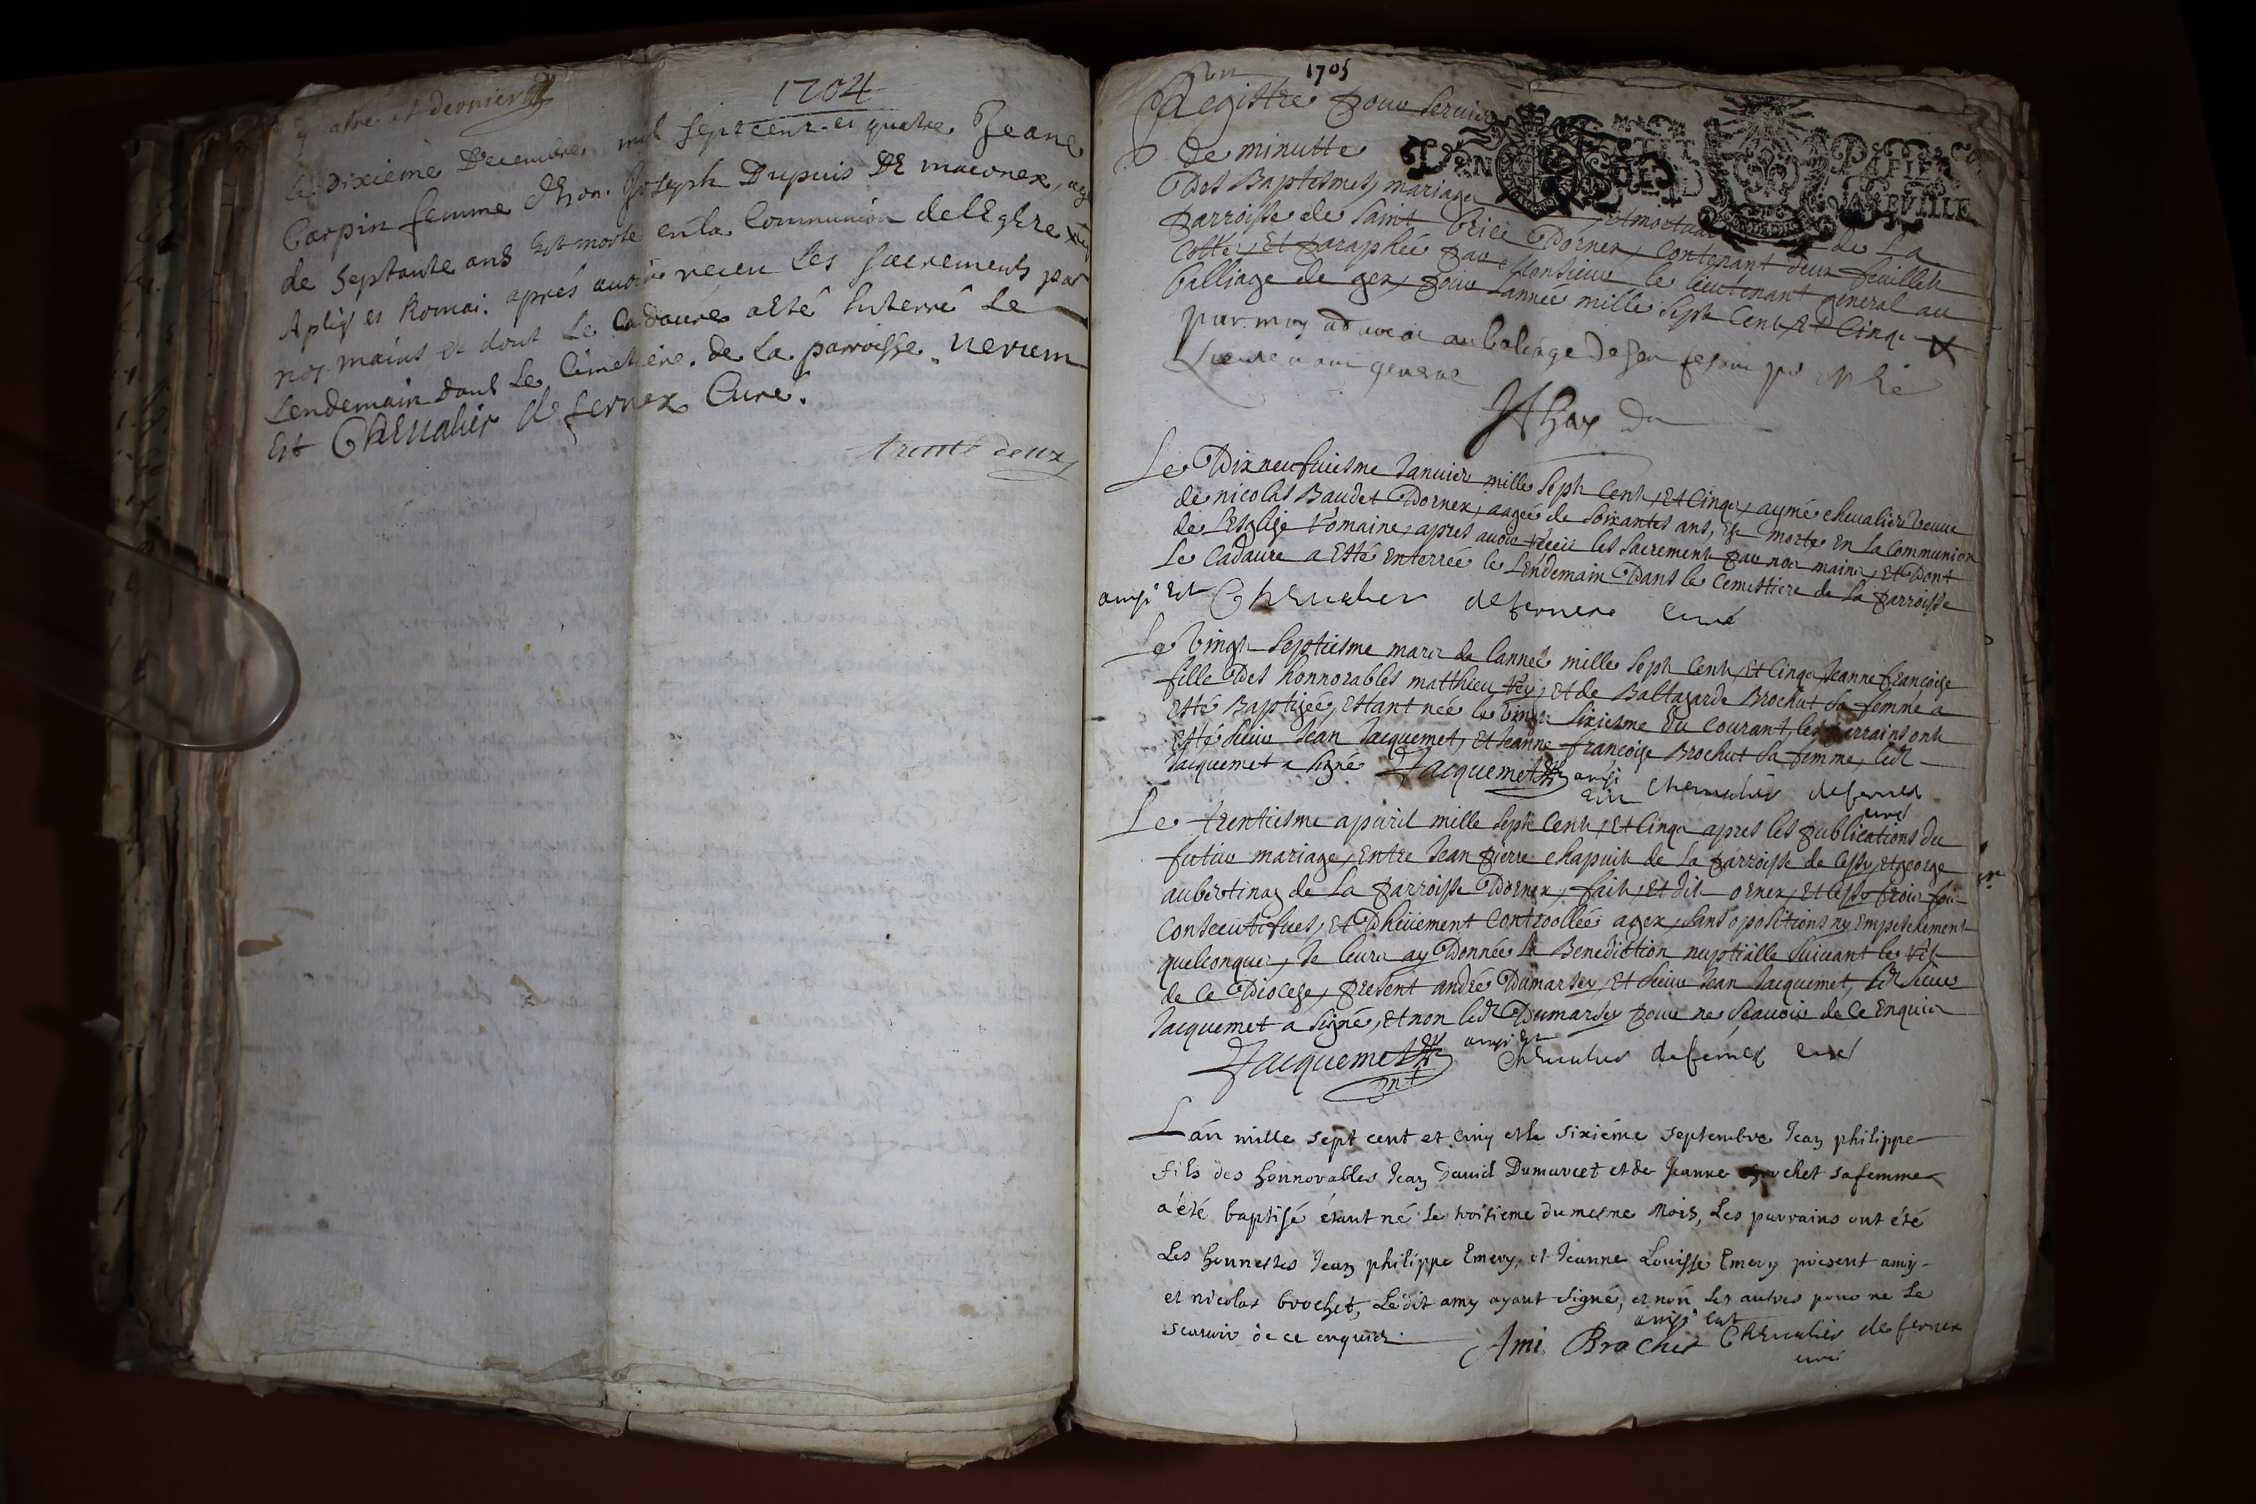 quatre et dernier
1704
Le dixieme Decembre mil sept cent et quatre Jeane
Carpin femme dhon. Joseph Dupuis DE maconex, age
de septante ans Est morte en la Communion de lEglise
Apliq et Romai. aprés avoir receu Les sacrements par
nos mains et dont Le Cadavre a eté Enterré Le
Lendemain dans Le Cimetiere de La parroisse. verum
Est Chevalier de fernex Curé.
trente deux
1705
Registre pour servir
de minutte
Des Baptesmes, mariages, et mortuaires de La
parroisse de saint brice Dornex, contenant deux feuillets
cotté, Et paraphée par Monsieur le lieutenant general au
balliage de gex, pour Lannée mille sept Cent Et Cinq
par moy advocat au baliage de gex
general
Le Dix neufviesme Janvier mille sept Cent, Et Cinq, aymé chevalier veuve
de nicolas Baudet Dornex, aagée de soixantes ans, Est morte En La Communion
de LEsglise Romaine, apres avoir receu les sacrement par nos mains, Et Dont
Le Cadavre a Esté Enterrée le Lendemain Dans le Cemettiere de La parroisse
ainsi Est Chevalier de fernex curé
Le vingt septiesme mars de lannée mille sept Cent, Et Cinq Jeanne françoise
fille Des honnorables matthieu Rey, Et de Baltazarde Brochut sa femme a
Esté Baptizée, Estant née le vingt sixiesme du Courant, les parrains ont
Esté sieur Jean Jacquemet, Et Jeanne françoise Brochut sa femme, ledt
Jacquemet a signé Jacquemet ainsi
Est Chevalier de fernex
curé
Le trentiesme apvril mille sept Cent, Et Cinq apres les publications du
futur mariage, Entre Jean pierre chapuit de La parroisse de Cessy, Et george
aubertinaz de La parroisse Dornex, fait, Et dit ornex, Et Cessy trois fois
Consecutifves, Et Dheuement Controollée a gex, sans opositions ny Empeschement
quelconques, Je leurs ay Donnée la Benediction nuptialle suivant le rit
de Ce Diocese, present andré Dumarsey, Et sieur Jean Jacquemet, ledt sieur
Jacquemet a signé, Et non ledt Dumarsey pour ne sçavoir de Ce Enquis
Jacquemet ainsi Est Chevalier de fernex curé
Lán mille sept cent et cinq et le sixiéme septembre Jean philippe
fils des honnorables Jean david Dumarcet et de Jeanne brochet sa femme
a été baptisé étant né le troisieme du mesme Mois, Les parrains ont été
Les honnestes Jean philippe Emery, et Jeanne Louisse Emery présent amy
et nicolas brochet, Ledit amy ayant signé, et non les autres pour ne le
scavoir de ce enquis
ainsi est
Ami Brochet Chevalier de fernex
curé